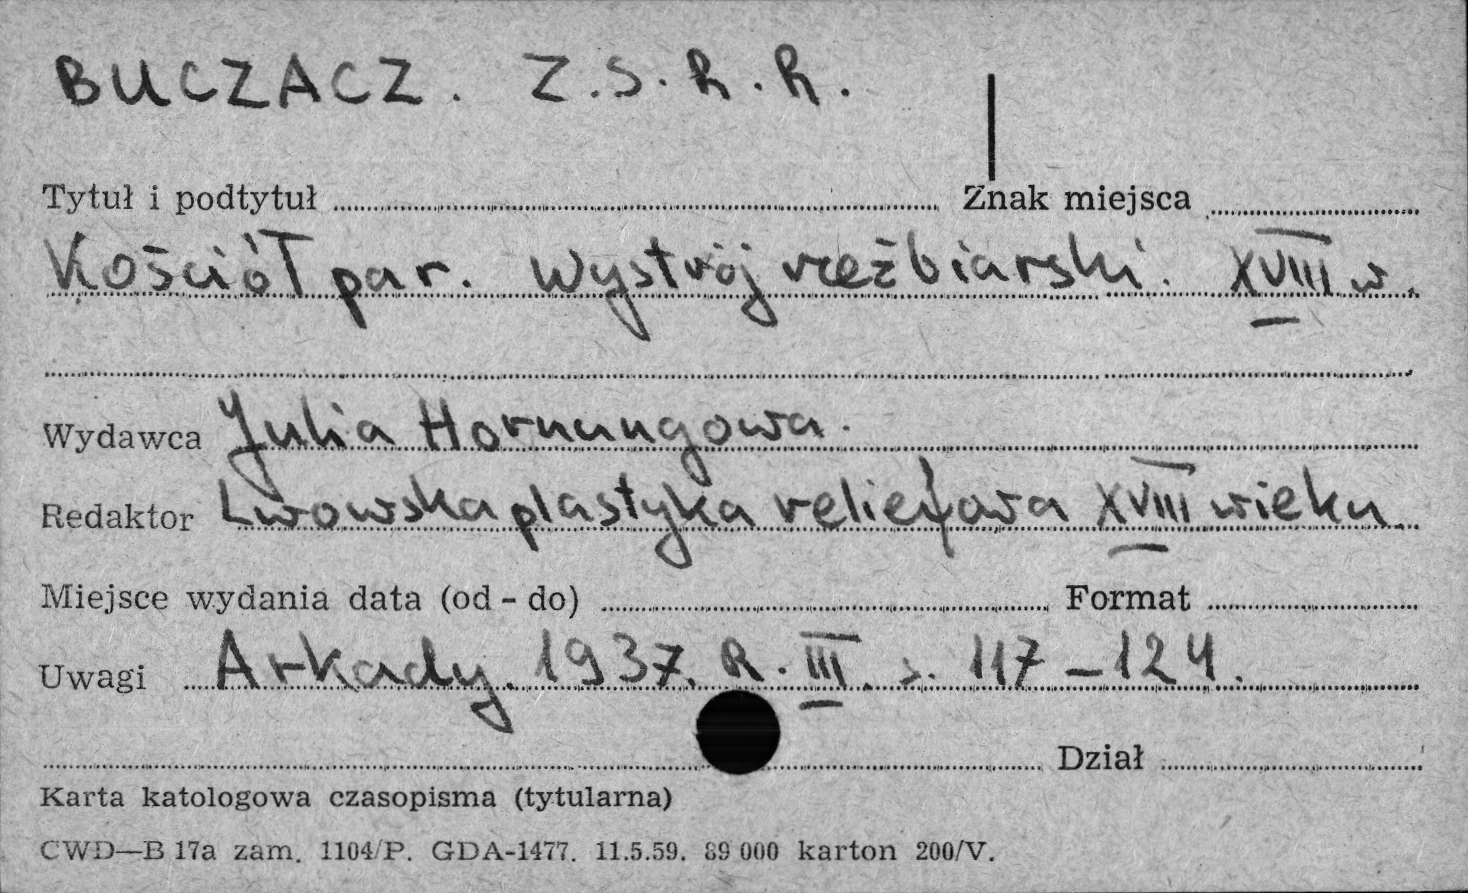 BUCZACZ. Z.S.R.R.
Tytuł i podtytuł Znak miejsca
Kościół par. Wystrój rzeźbiarski. XVIII w.
Wydawca Julia Hornungowa.
Redaktor Lwowska plastyka reliefowa XVIII wieku.
Miejsce wydania data (od - do) Format
Uwagi Arkady. 1937. R. III. s. 117-124.
Dział
Karta katologowa czasopisma (tytularna)
CWD—B 17a zam. 1104/P. GDA-1477. 11.5.59. 89 000 karton 200/V.